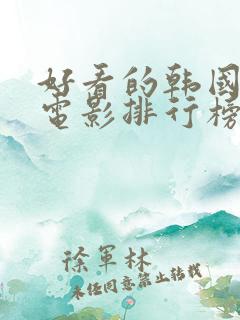 好看的韩国
电影排行榜
徐军林
未经同意禁止转载